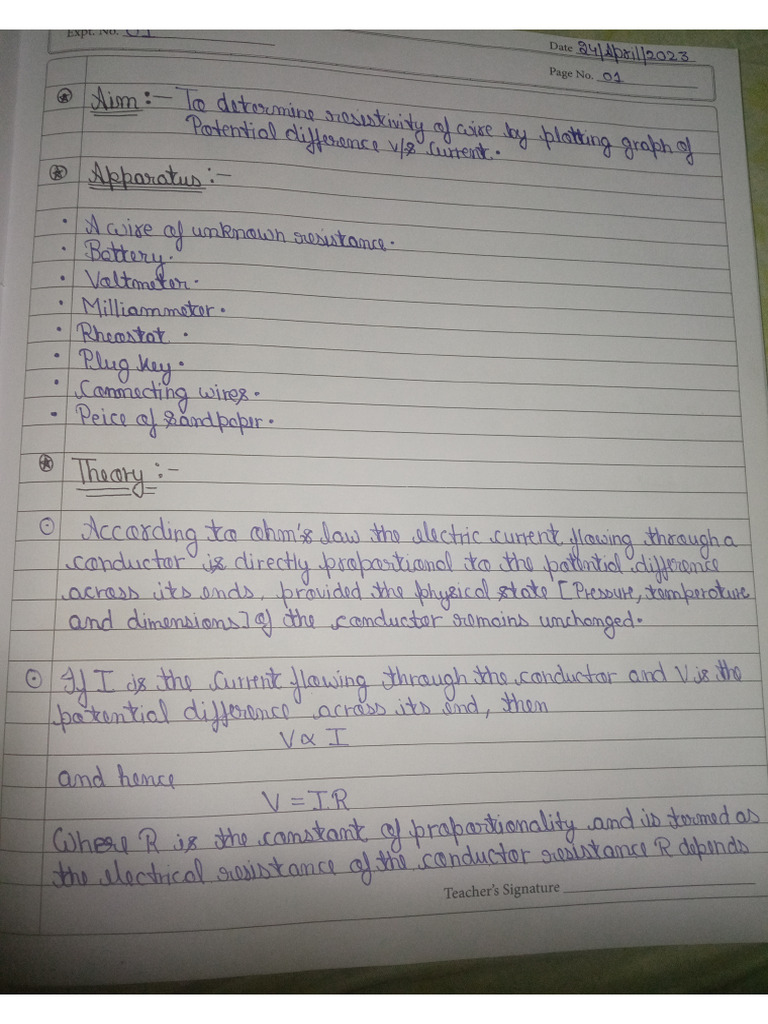 Expt. No. 01
Date 24/April/2023
Page No. 01
Aim :- To determine resistivity of wire by plotting graph of
Potential difference v/s current.
Apparatus :-
• A wire of unknown resistance.
• Battery.
• Voltmeter.
• Milliammeter.
• Rheostat.
• Plug key.
• Connecting wires.
• Peice of sandpaper.
Theory :-
According to ohm's law the electric current flowing through a
conductor is directly proportional to the potential difference
across its ends, provided the physical state [Pressure, temperature
and dimensions] of the conductor remains unchanged.
If I is the current flowing through the conductor and V is the
potential difference across its end, then
V ∝ I
and hence
V = IR
Where R is the constant of proportionality and is termed as
the electrical resistance of the conductor resistance R depends
Teacher's Signature